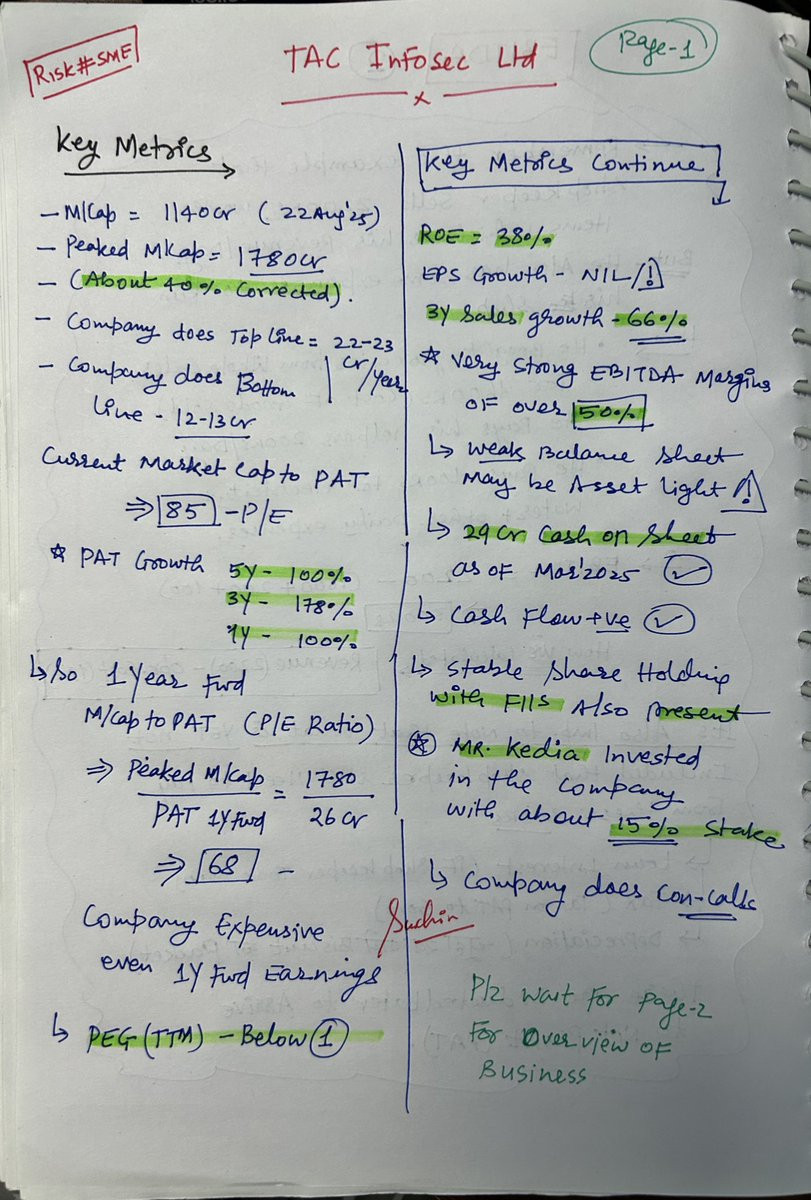 Risk#SME
TAC Infosec Ltd
Page-1
Key Metrics
- M/Cap = 1140cr ( 22Aug'25)
- Peaked M/Cap = 1780cr
- (About 40% Corrected).
- Company does Top Line = 22-23 Cr/Year
- Company does Bottom
Line - 12-13cr
Current Market Cap to PAT
⇒ 85 - P/E
☆ PAT Growth 5Y - 100%
3Y - 178%
1Y - 100%
↳ So 1 Year Fwd
M/Cap to PAT (P/E Ratio)
⇒ Peaked M/Cap / PAT 1Y Fwd = 1780 / 26 Cr
⇒ 68 -
Company Expensive
even 1Y Fwd Earnings
↳ PEG (TTM) - Below 1
Key Metrics Continue
ROE = 38%
EPS Growth - NIL/⚠
3Y Sales growth - 66%
☆ Very Strong EBITDA Margins
of over 50%
↳ Weak Balance Sheet
may be Asset light ⚠
↳ 29 Cr Cash on Sheet
as of Mar'2025 ✓
↳ Cash Flow +ve ✓
↳ Stable Share Holding
with FIIs Also present
☆ MR. Kedia Invested
in the company
with about 15% Stake
↳ Company does Con-calls
Sachin
Plz wait for page-2
for overview of
Business